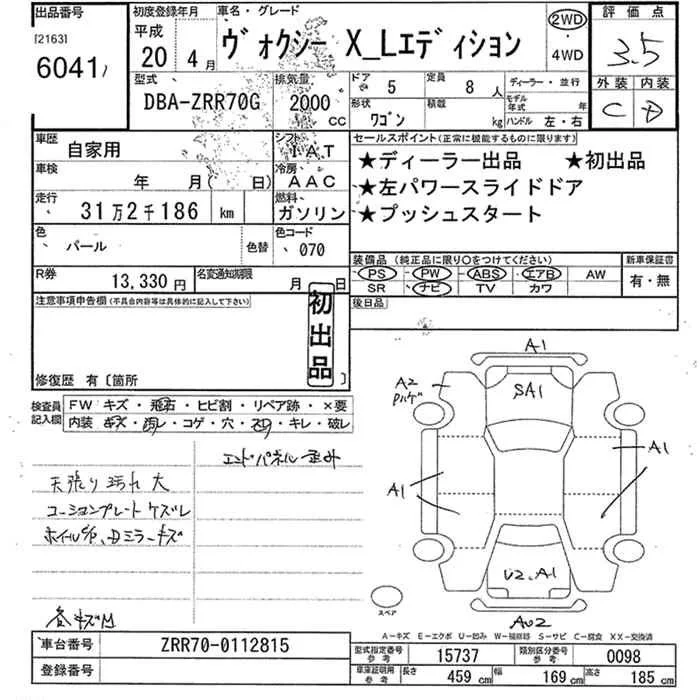 出品番号
[2163]
6041
初度登録年月
平成
20年 4月
車名・グレード
ヴォクシー X_Lエディション
2WD
・
4WD
評価点
3.5
外装 内装
C D
型式
DBA-ZRR70G
排気量
2000
CC
ドア 5
定員 8人
形状
ワゴン
積載
kg
ディーラー・並行
モデル年式 年
ハンドル 左・右
車歴
自家用
シフト
IAT
車検
年 月( 日)
冷房
AAC
走行
31万2千186 km
燃料
ガソリン
色
パール
色替
色コード
070
R券
13,330円
名変通知期限
月 日
セールスポイント(正常に機能するものに限ります)
★ディーラー出品 ★初出品
★左パワースライドドア
★プッシュスタート
装備品(純正品に限り○をつけてください)
PS PW ABS エアB AW
SR ナビ TV カワ
新車保証書
有・無
後日品
注意事項申告欄(不具合内容等は具体的に記入して下さい)
初出品
修復歴 有〔箇所 〕
検査員
記入欄
FW キズ・飛石・ヒビ割・リペア跡・×要
内装 キズ・汚レ・コゲ・穴・ヌケ・キレ・破レ
エンドパネル歪み
天張り汚れ大
コーションプレートケズレ
ホイルキズ、Dミラーキズ
各キズM
A1
A2
SA1
A1
A1
U2、A1
AU2
スペア
A-キズ E-エクボ U-凹み W-補修跡 S-サビ C-腐食 XX-交換済
車台番号
ZRR70-0112815
登録番号
型式指定番号
参考
15737
類別区分番号
参考
0098
車庫証明用
参考
長さ 459 cm
幅 169 cm
高さ 185 cm